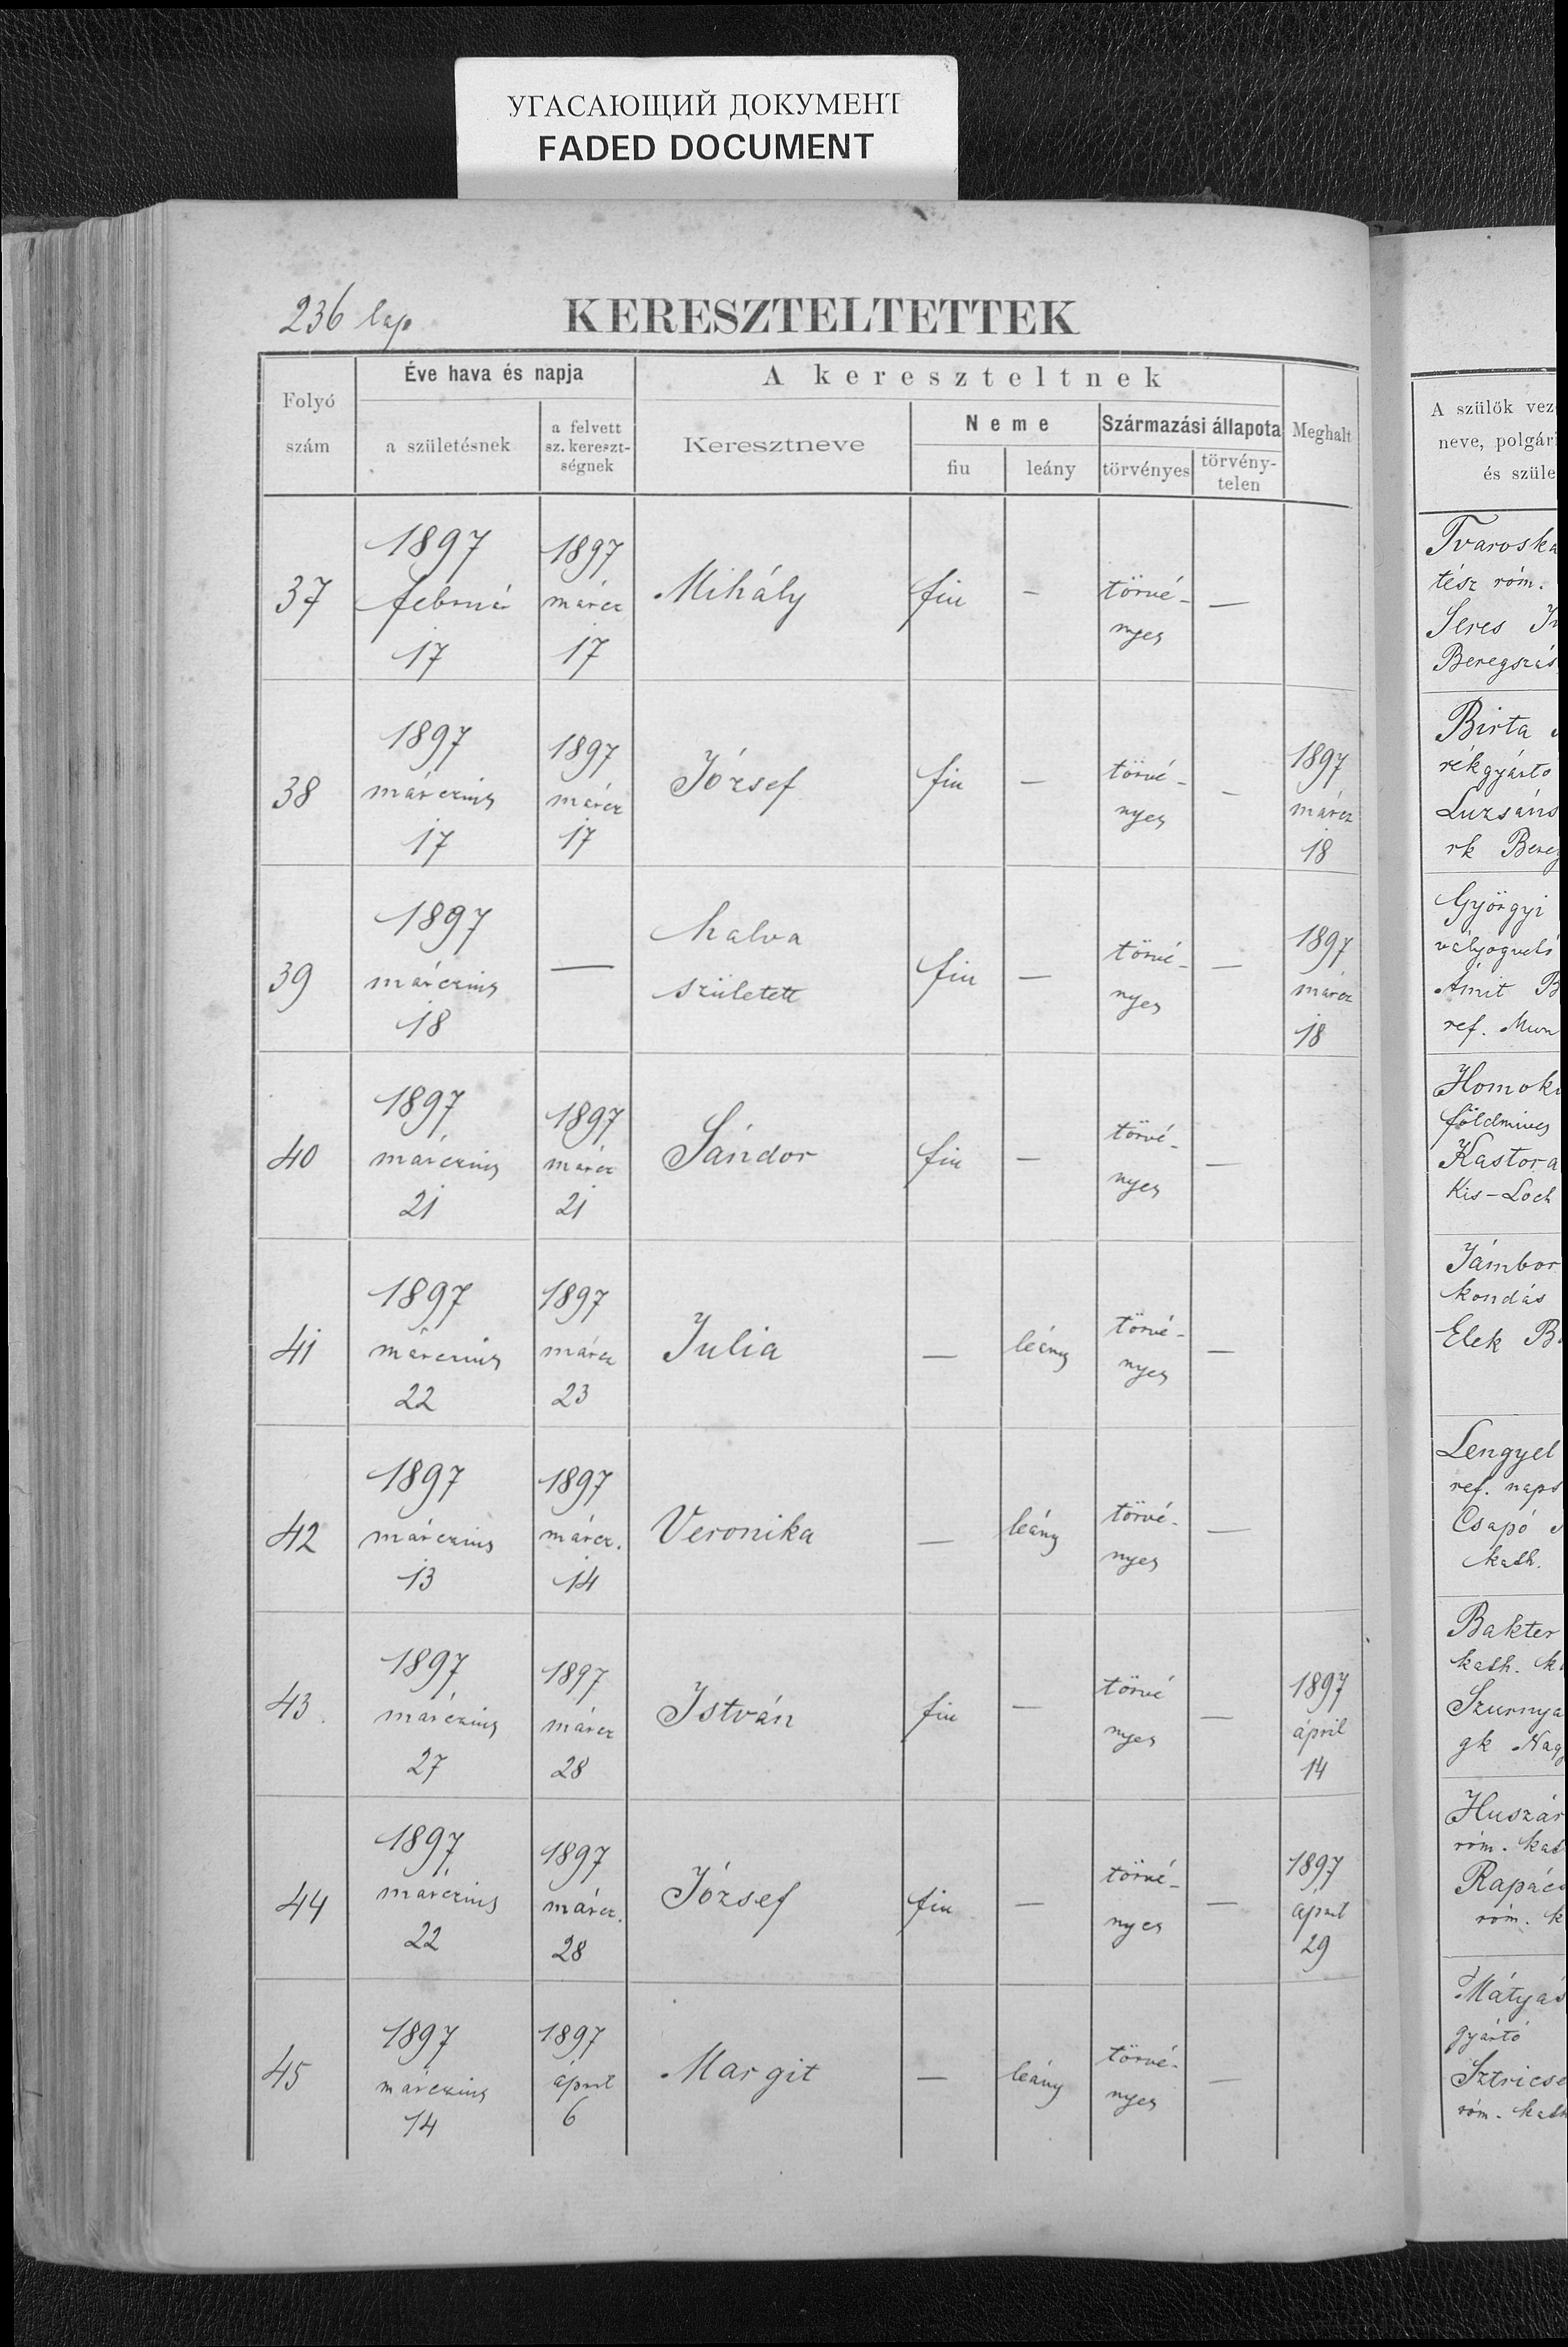 УГАСАЮЩИЙ ДОКУМЕНТ
FADED DOCUMENT
236 lap
KERESZTELTETTEK
Folyó szám
Éve hava és napja
a születésnek
a felvett sz. kereszt-ségnek
A kereszteltnek
Keresztneve
Neme
fiu
leány
Származási állapota
törvényes
törvény-telen
Meghalt
37
1897 februá 17
1897 márcz 17
Mihály
fiu
—
törvé-nyes
—
38
1897 márczius 17
1897 márcz 17
József
fiu
—
törvé-nyes
—
1897 márcz 18
39
1897 márczius 18
—
halva született
fiu
—
törvé-nyes
—
1897 márcz 18
40
1897 márczius 21
1897 márcz 21
Sándor
fiu
—
törvé-nyes
—
41
1897 márczius 22
1897 márcz 23
Julia
—
leány
törvé-nyes
—
42
1897 márczius 13
1897 márcz. 14
Veronika
—
leány
törvé-nyes
—
43.
1897 márczius 27
1897 márcz 28
István
fiu
—
törvé nyes
—
1897 ápril 14
44
1897 márczius 22
1897 márcz. 28
József
fiu
—
törvé-nyes
—
1897 ápril 29
45
1897 márczius 14
1897 ápril 6
Margit
—
leány
törvé-nyes
—
A szülők vez
neve, polgári
és szüle
Tvaroska
tész róm.
Seres
Beregszás
Birta
rékgyártó
Luzsáns
rk Bereg
Györgyi
vályogvető
Ámit B
ref. Mun
Homoki
földmives
Kastora
Kis-Loch
Jámbor
kondás
Elek B
Lengyel
ref. naps
Csapó
kath.
Bakter
kath. k
Szurnya
gk Nag
Huszár
róm. kat
Rapács
róm. k
Mátyás
gyártó
Sztricse
róm. kath